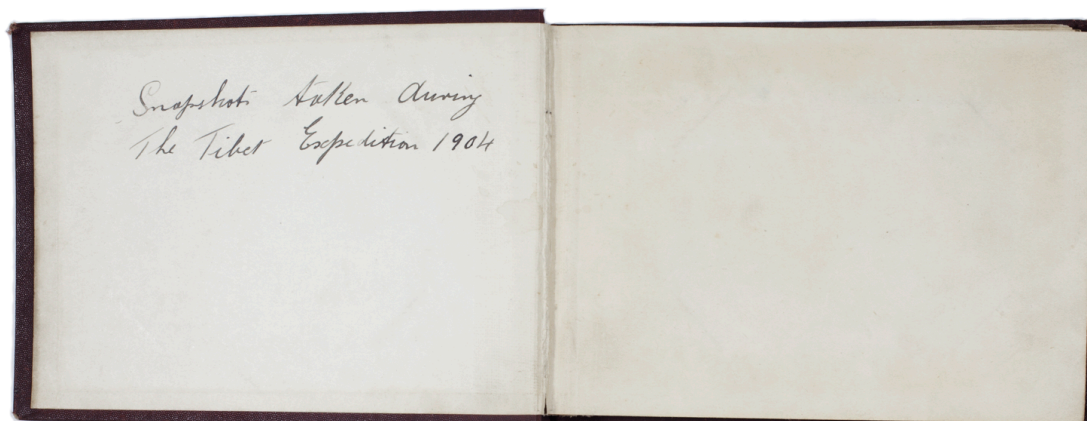 Snapshots taken during
The Tibet Expedition 1904